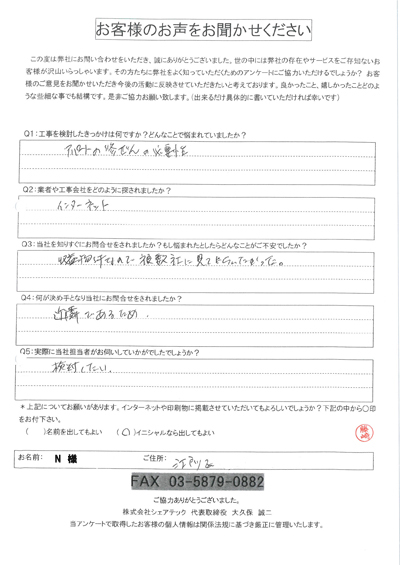 お客様のお声をお聞かせください
この度は弊社にお問い合わせをいただき、誠にありがとうございました。世の中には弊社の存在やサービスをご存知ないお
客様が沢山いらっしゃいます。その方たちに弊社をよく知っていただくためのアンケートにご協力いただけるでしょうか？ お客
様のご意見をお聞かせいただき今後の活動に反映させていただきたいと考えております。良かったこと、嬉しかったことどのよ
うな些細な事でも結構です。是非ご協力お願い致します。(出来るだけ具体的に書いていただければ幸いです)
Q1：工事を検討したきっかけは何ですか？どんなことで悩まれていましたか？
アパートの修ぜんの必要性
Q2：業者や工事会社をどのように探されましたか？
インターネット
Q3：当社を知りすぐにお問合せをされましたか？もし悩まれたとしたらどんなことがご不安でしたか？
なので複数社に見てもらいたかった。
Q4：何が決め手となり当社にお問合せをされましたか？
近隣であるため.
Q5：実際に当社担当者がお伺いしていかがでしたでしょうか？
検討したい.
＊上記についてお願いがあります。インターネットや印刷物に掲載させていただいてもよろしいでしょうか？下記の中から〇印
をお付下さい。
(　)名前を出してもよい　(〇)イニシャルなら出してもよい
お名前： N 様 ご住所：
FAX 03-5879-0882
ご協力ありがとうございました。
株式会社シェアテック 代表取締役 大久保 誠二
当アンケートで取得したお客様の個人情報は関係法規に基づき厳正に管理いたします。